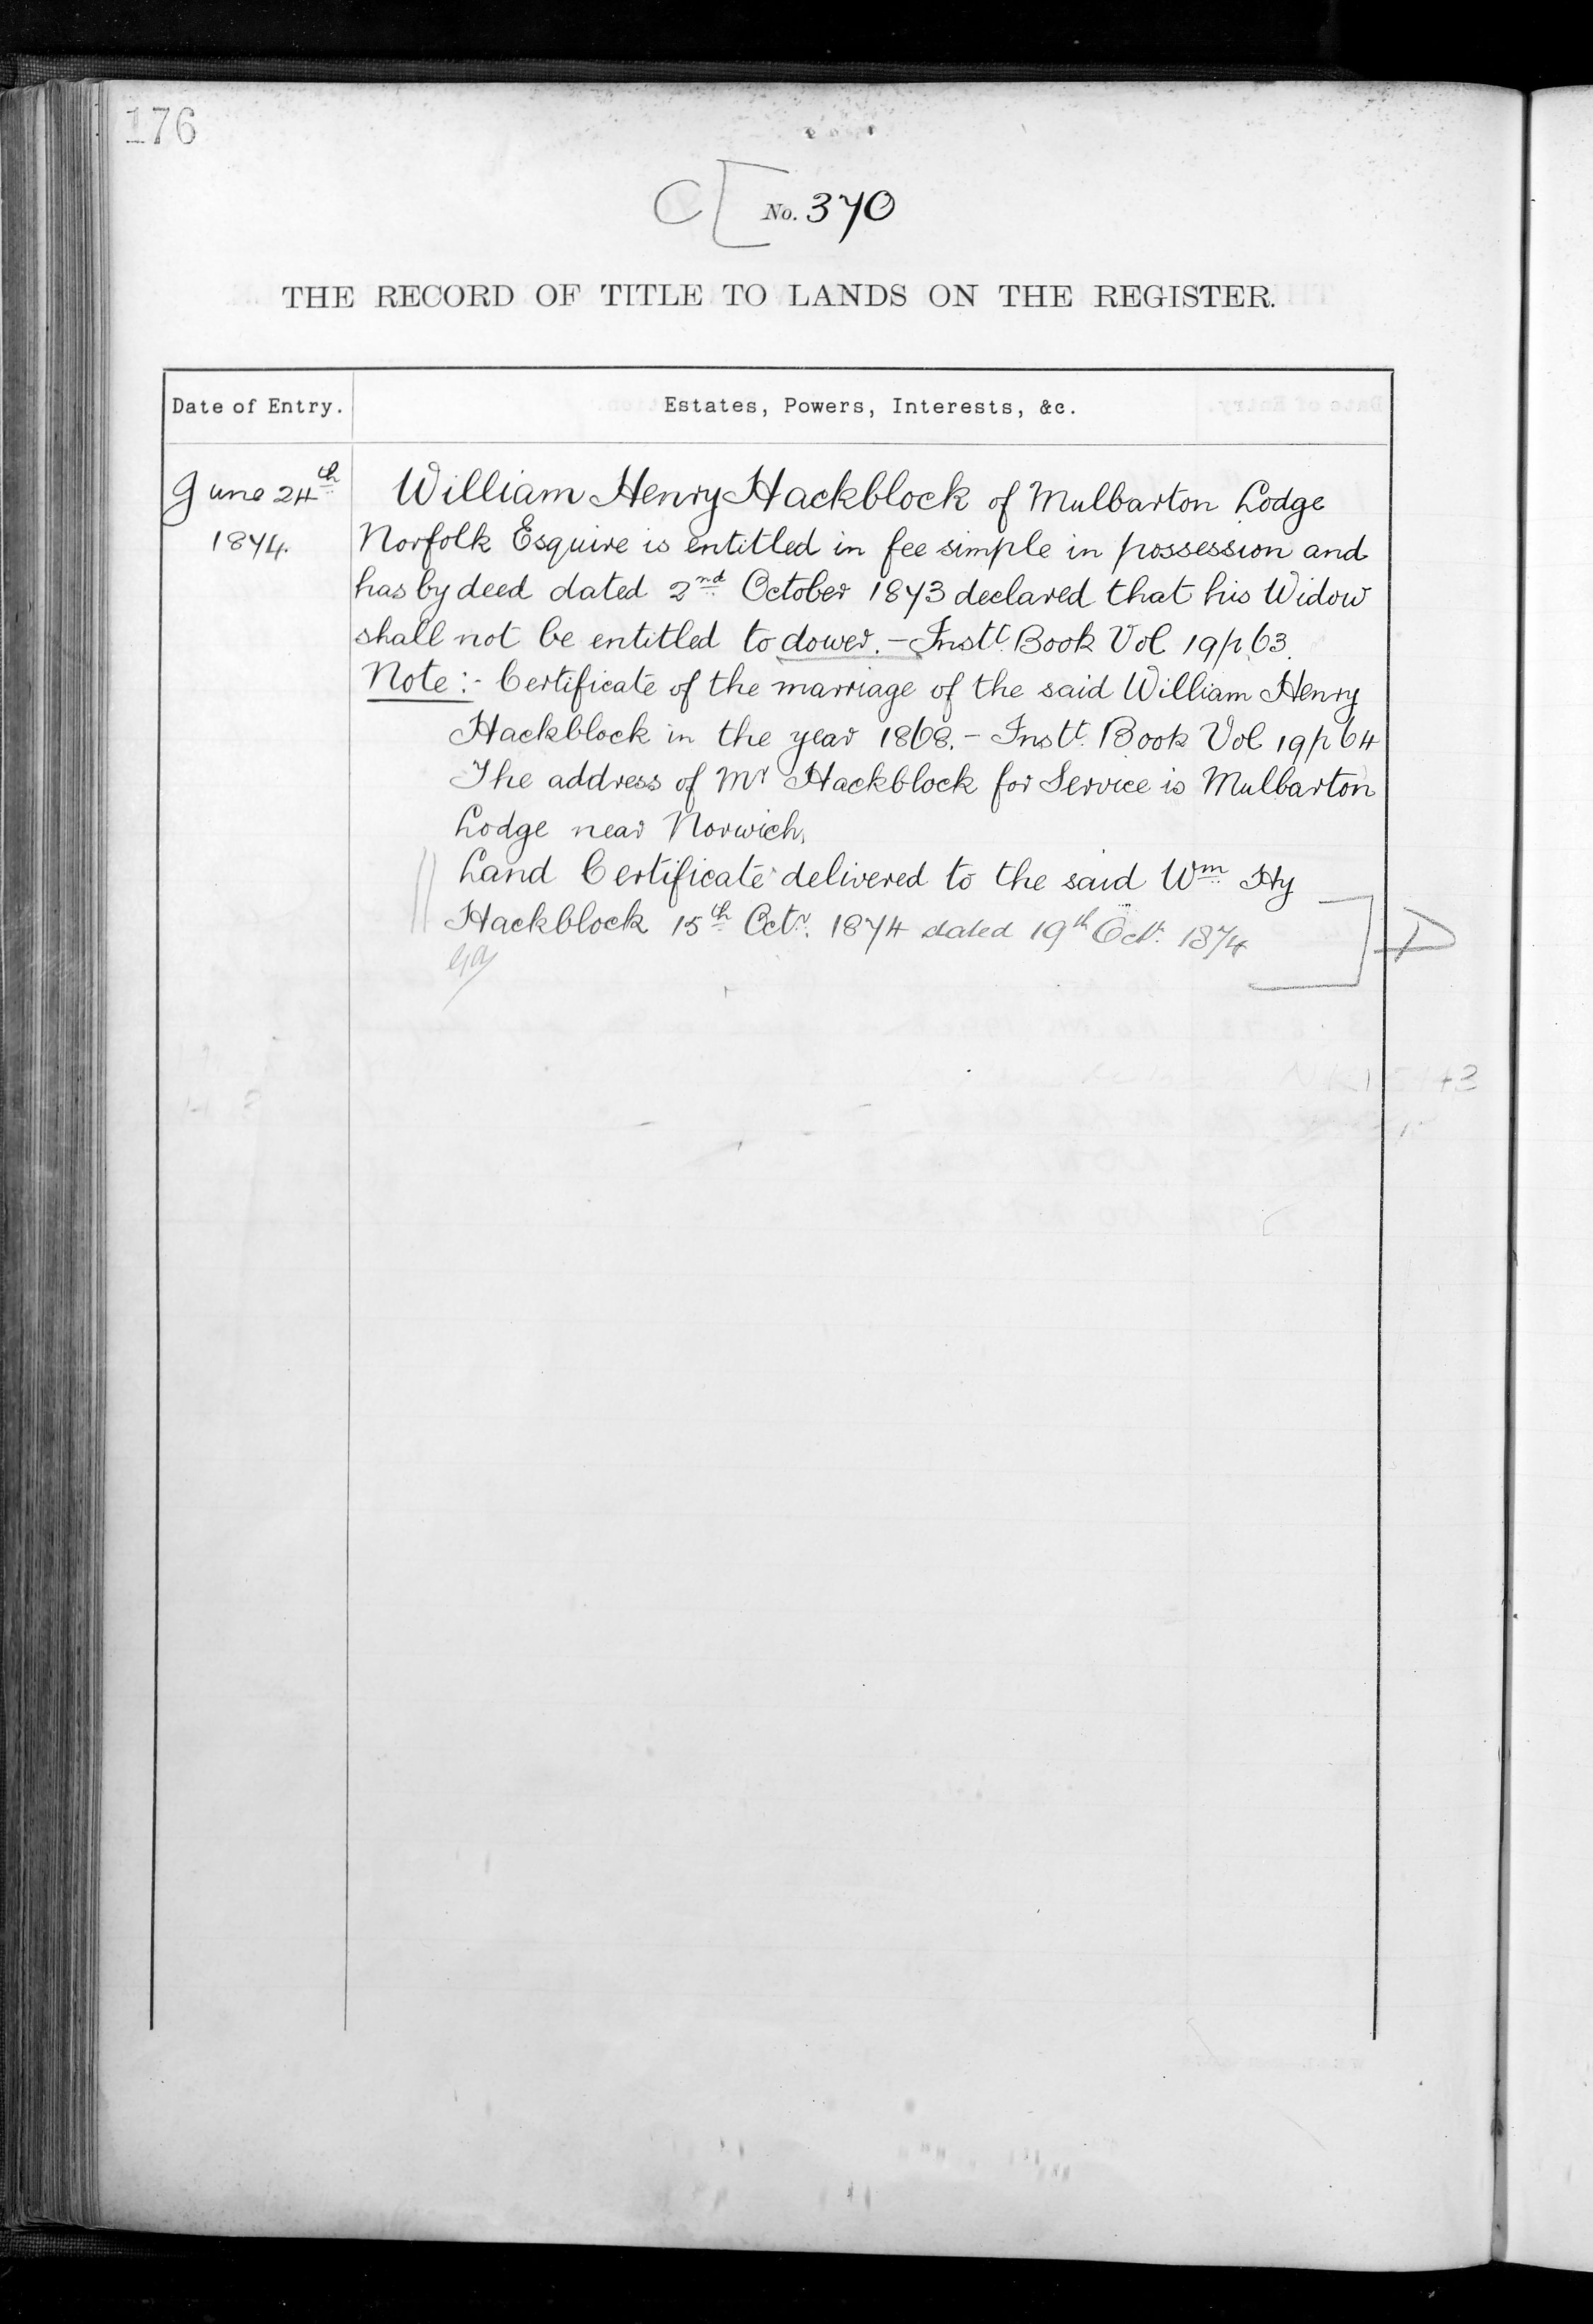 176
C [ No. 370
THE RECORD OF TITLE TO LANDS ON THE REGISTER.
Date of Entry. Estates, Powers, Interests, &c.
June 24th William Henry Hackblock of Mulbarton Lodge
1874. Norfolk Esquire is entitled in fee simple in possession and
has by deed dated 2nd October 1873 declared that his Widow
shall not be entitled to dower. - Instt. Book Vol 19 p 63.
Note:- Certificate of the marriage of the said William Henry
Hackblock in the year 1868. - Instt. Book Vol 19 p 64
The address of Mr Hackblock for Service is Mulbarton
Lodge near Norwich.
Land Certificate delivered to the said Wm Hy
Hackblock 15th Octr. 1874 dated 19th Octr. 1874
] D